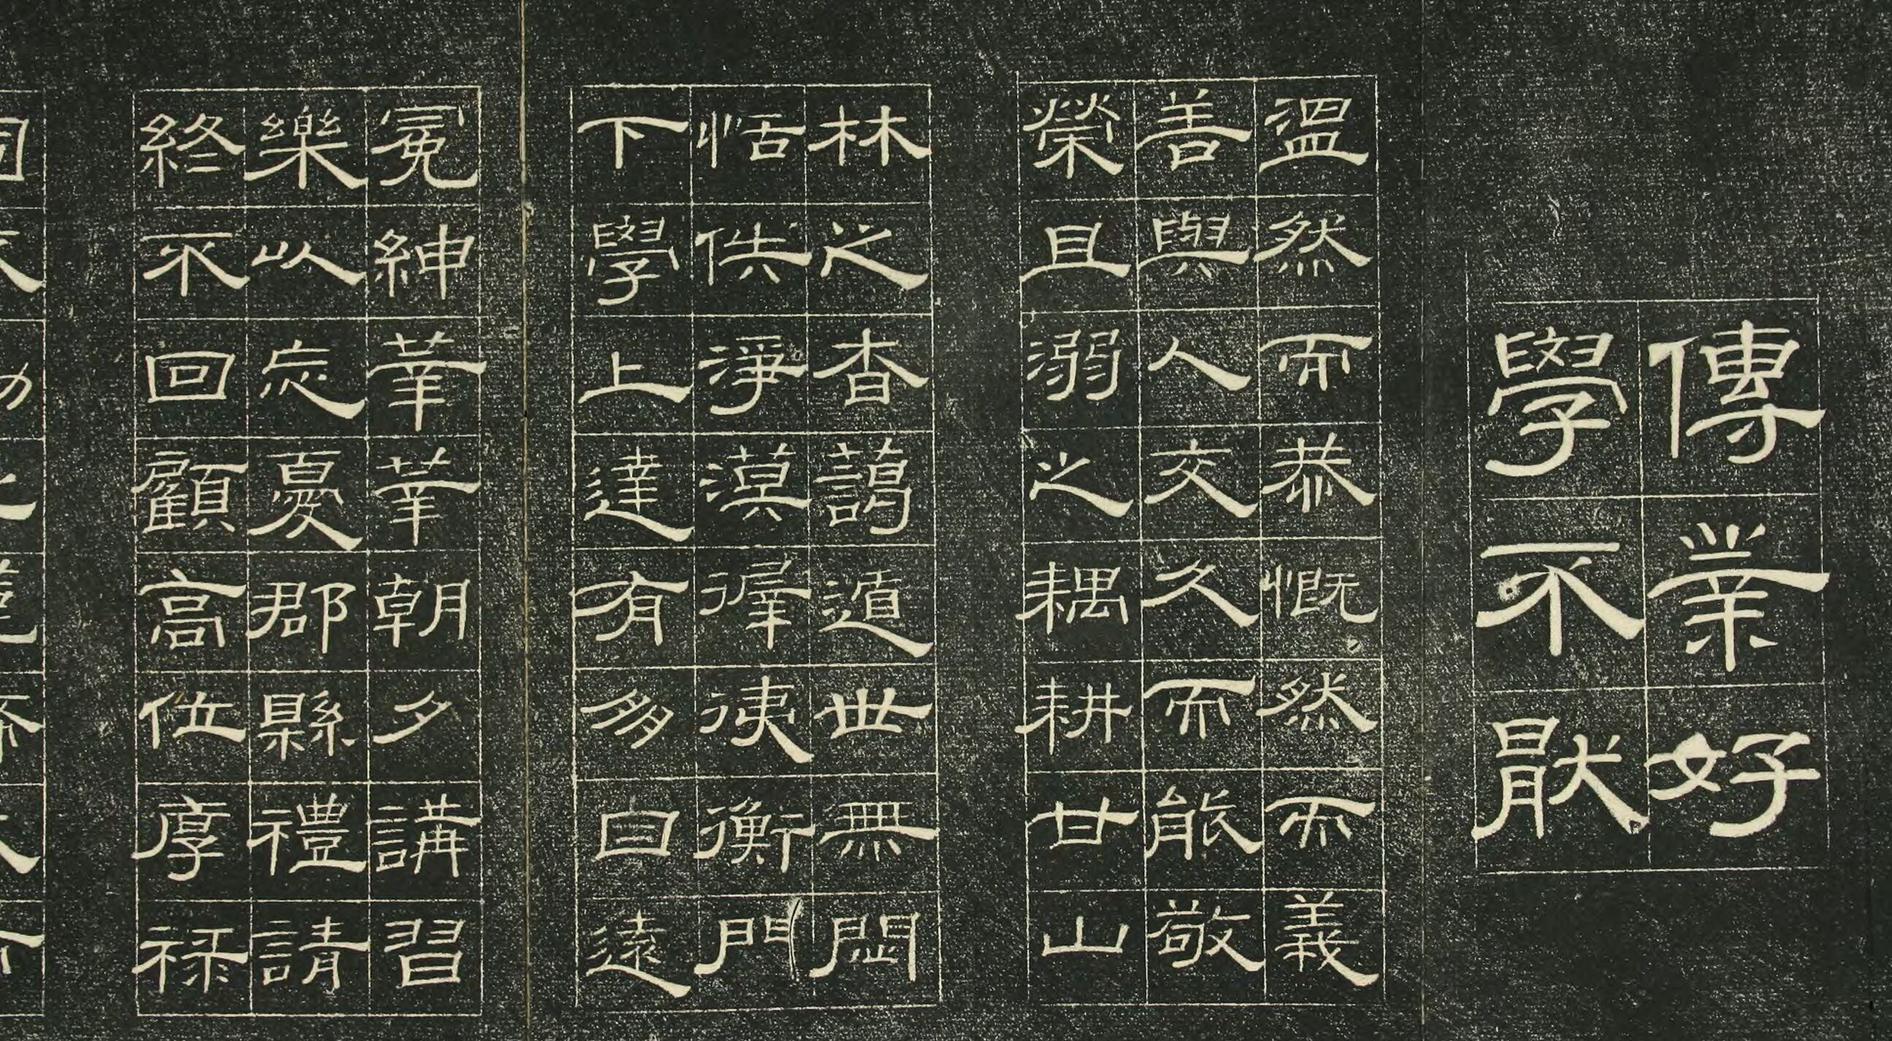 傳業好
學不猒
溫然而恭慨然而義
善與人交久而能敬
榮且溺之耦耕甘山
林之杳藹遁世無悶
恬佚淨漠徲衡門
下學上達有朋自遠
冕紳莘莘朝夕講習
樂以忘憂郡縣禮請
終不回顧高位厚祿